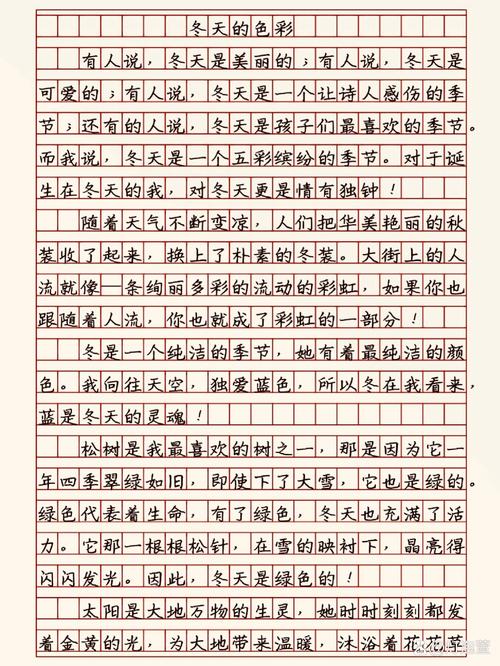 冬天的色彩
有人说，冬天是美丽的；有人说，冬天是
可爱的；有人说，冬天是一个让诗人感伤的季
节；还有的人说，冬天是孩子们最喜欢的季节。
而我说，冬天是一个五彩缤纷的季节。对于诞
生在冬天的我，对冬天更是情有独钟！
随着天气不断变凉，人们把华美艳丽的秋
装收了起来，换上了朴素的冬装。大街上的人
流就像一条绚丽多彩的流动的彩虹，如果你也
跟随着人流，你也就成了彩虹的一部分！
冬是一个纯洁的季节，她有着最纯洁的颜
色。我向往天空，独爱蓝色，所以冬在我看来，
蓝是冬天的灵魂！
松树是我最喜欢的树之一，那是因为它一
年四季翠绿如旧，即使下了大雪，它也是绿的。
绿色代表着生命，有了绿色，冬天也充满了活
力。它那一根根松针，在雪的映衬下，晶亮得
闪闪发光。因此，冬天是绿色的！
太阳是大地万物的生灵，她时时刻刻都发
着金黄的光，为大地带来温暖，沐浴着花花草